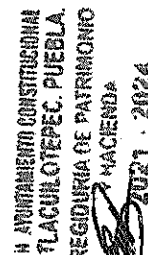 H AYUNTAMIENTO CONSTITUCIONAL
TLACUILOTEPEC, PUEBLA.
REGIDURIA DE PATRIMONIO
Y HACIENDA
2021 - 2024